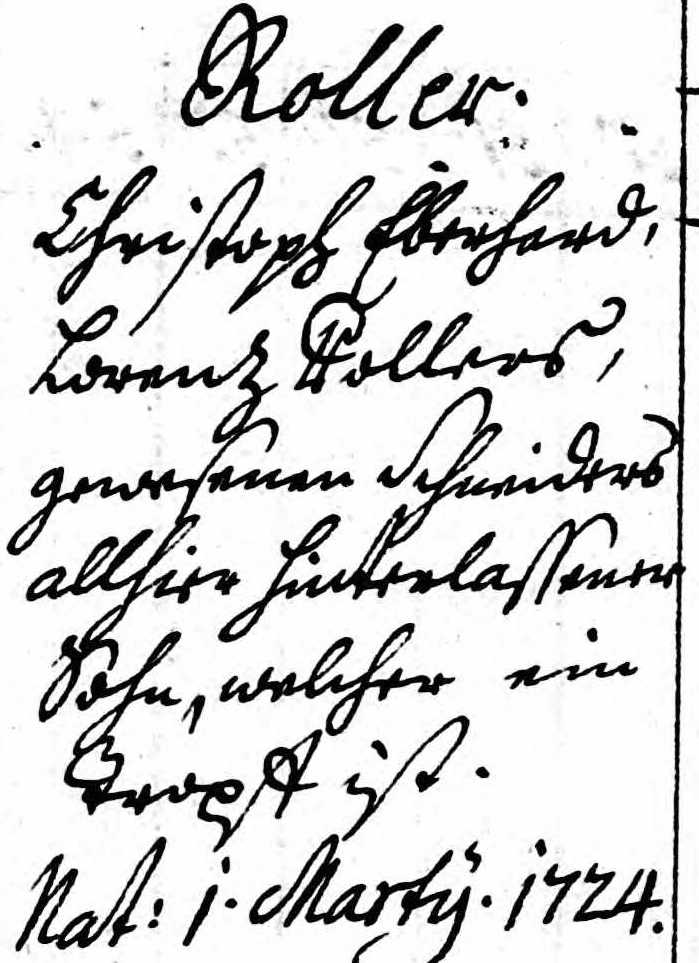 Roller.
Christoph Eberhard,
Lorentz Rollers,
gewesenen Schneiders
allhier hinterlassener
Sohn, welcher ein
Tropff ist.
Nat: 1. Martÿ. 1724.